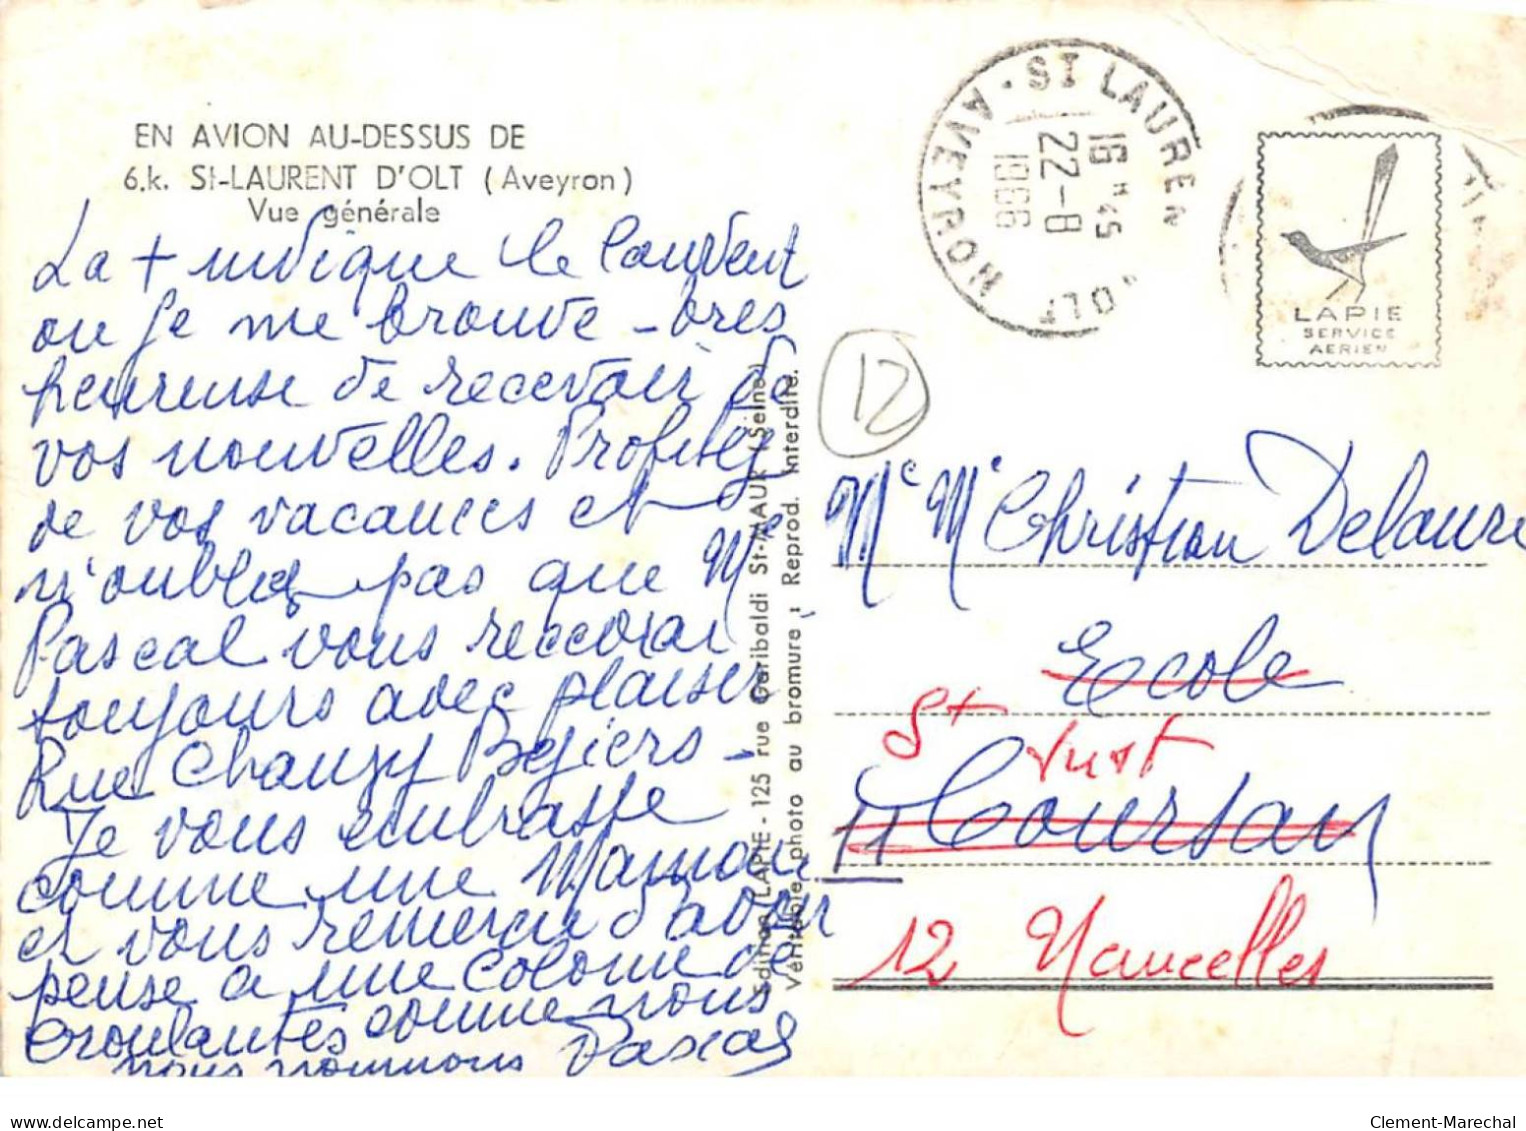 EN AVION AU-DESSUS DE
6.k. St-LAURENT D'OLT (Aveyron)
Vue générale
La + indique le couvent
ou je me trouve - très
heureuse de recevoir de
vos nouvelles. Profitez
de vos vacances et
n'oubliez pas que Me
Pascal vous recevrai
toujours avec plaisir
Rue Chanzy Béziers -
Je vous embrasse
comme une Maman
et vous remercie d'avoir
pensé a une colonie de
croulantes comme nous
nous nommons Pascal
Edition LAPIE - 125 rue Garibaldi St-MAUR (Seine)
Véritable photo au bromure ; Reprod. interdite.
ST LAURENT D'OLT
AVEYRON
16H45
22-8
1966
LAPIE
SERVICE
AERIEN
12
Me Me Christian Delaure
Ecole
St Just
11 Coursan
12 Naucelles
Clement-Marechal